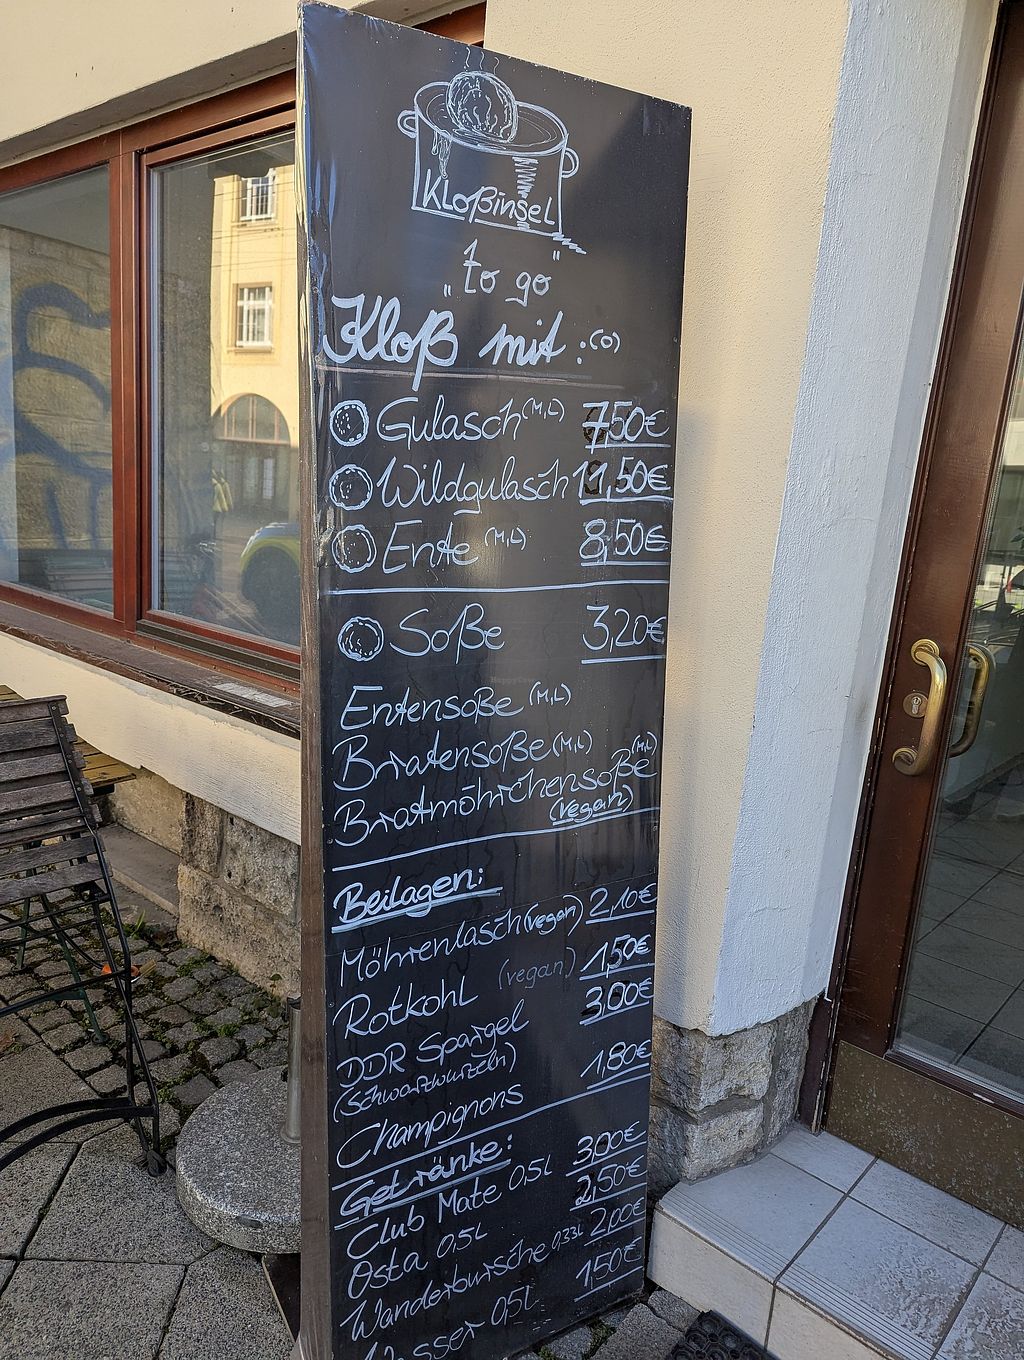 Kloßinsel
„to go"
Kloß mit : (O)
Gulasch (M,L) 7,50€
Wildgulasch 11,50€
Ente (M,L) 8,50€
Soße 3,20€
Entensoße (M,L)
Bratensoße (M,L)
Bratmöhrchensoße (M,L)
(vegan)
Beilagen:
Möhrenlasch (vegan) 2,10€
Rotkohl (vegan) 1,50€
DDR Spargel 3,00€
(Schwarzwurzeln)
Champignons 1,80€
Getränke:
Club Mate 0,5l 3,00€
Osta 0,5l 2,50€
Wanderbursche 0,33l 2,00€
Wasser 0,5l 1,50€